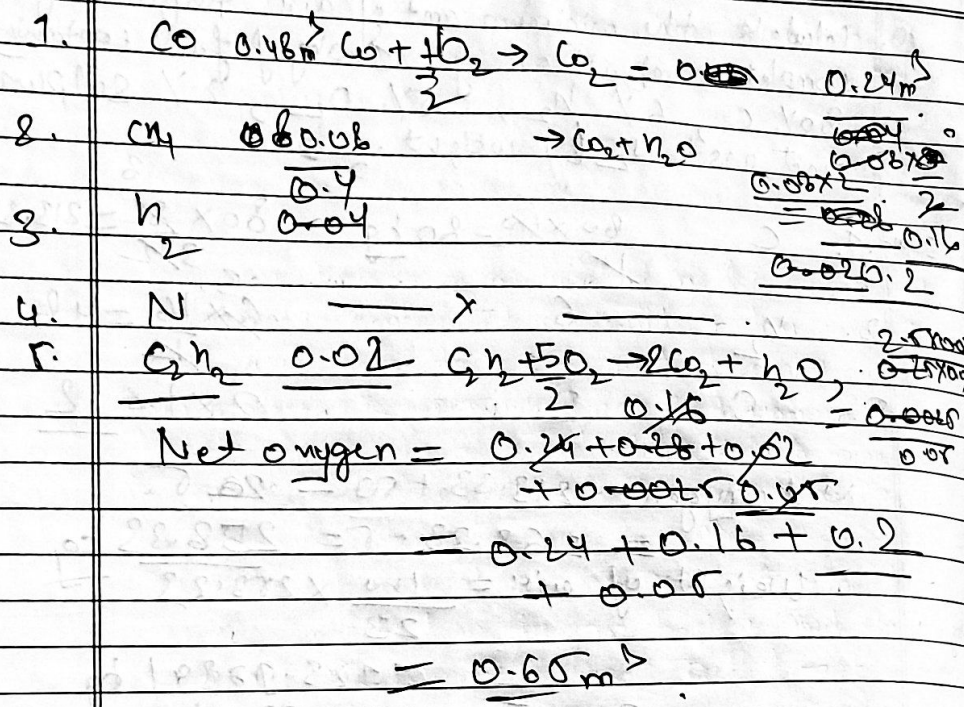 1. CO 0.48m³ CO + 1/2 O2 → CO2 = 0. 0.24m³
2. CH4 0.08 → CO2 + H2O 0.08×2
= 0.16
3. H2 0.4 0.2
4. N —— × ——
5. C2H2 0.02 C2H2 + 5/2 O2 → 2CO2 + H2O,
= 0.05
Net oxygen =
= 0.24 + 0.16 + 0.2
+ 0.05
= 0.65 m³